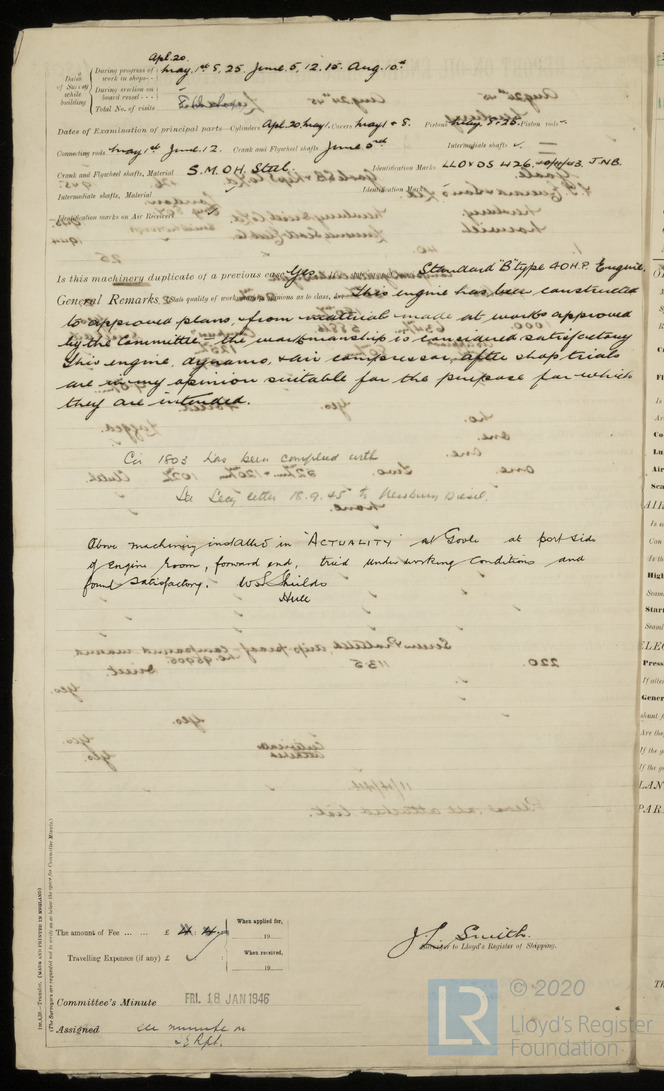 Apl. 20.
Dates of Survey while building
During progress of work in shops - - May. 1st 8, 25, June. 5, 12. 15. Aug. 10th
During erection on board vessel - - -
Total No. of visits
Dates of Examination of principal parts—Cylinders Apl. 20 May 1. Covers May 1 & 8. Pistons May. 8. 25. Piston rods -
Connecting rods May 1st June. 12. Crank and Flywheel shafts June 5th Intermediate shafts
Crank and Flywheel shafts, Material S. M. O. H. Steel. Identification Marks LLOYDS 426. JNB.
Intermediate shafts, Material Identification Marks
Identification marks on Air Receivers
Is this machinery duplicate of a previous case Yes. Standard "B" type 40 H.P. Engine.
General Remarks (State quality of workmanship, opinions as to class, &c. This engine has been constructed
to approved plans, & from material made at works approved
by the Committee – the workmanship is considered satisfactory
This engine, dynamo, & air compressor, after shop trials
are in my opinion suitable for the purpose for which
they are intended.
Cir 1803 has been complied with
See Secy letter 18.9.45 to Newbury Diesel.
Above machinery installed in "ACTUALITY" at Goole at port side
of engine room, forward end, tried under working conditions and
found satisfactory. W S Shields
Hull
The amount of Fee ... ... £
When applied for,
19
Travelling Expenses (if any) £
When received,
19
J. L. Smith.
Surveyor to Lloyd's Register of Shipping.
Committee's Minute FRI. 18 JAN 1946
Assigned See minute on
(MADE AND PRINTED IN ENGLAND)
(The Surveyors are requested not to write on or below the space for Committee Minute.)
© 2020
LR
Lloyd's Register
Foundation